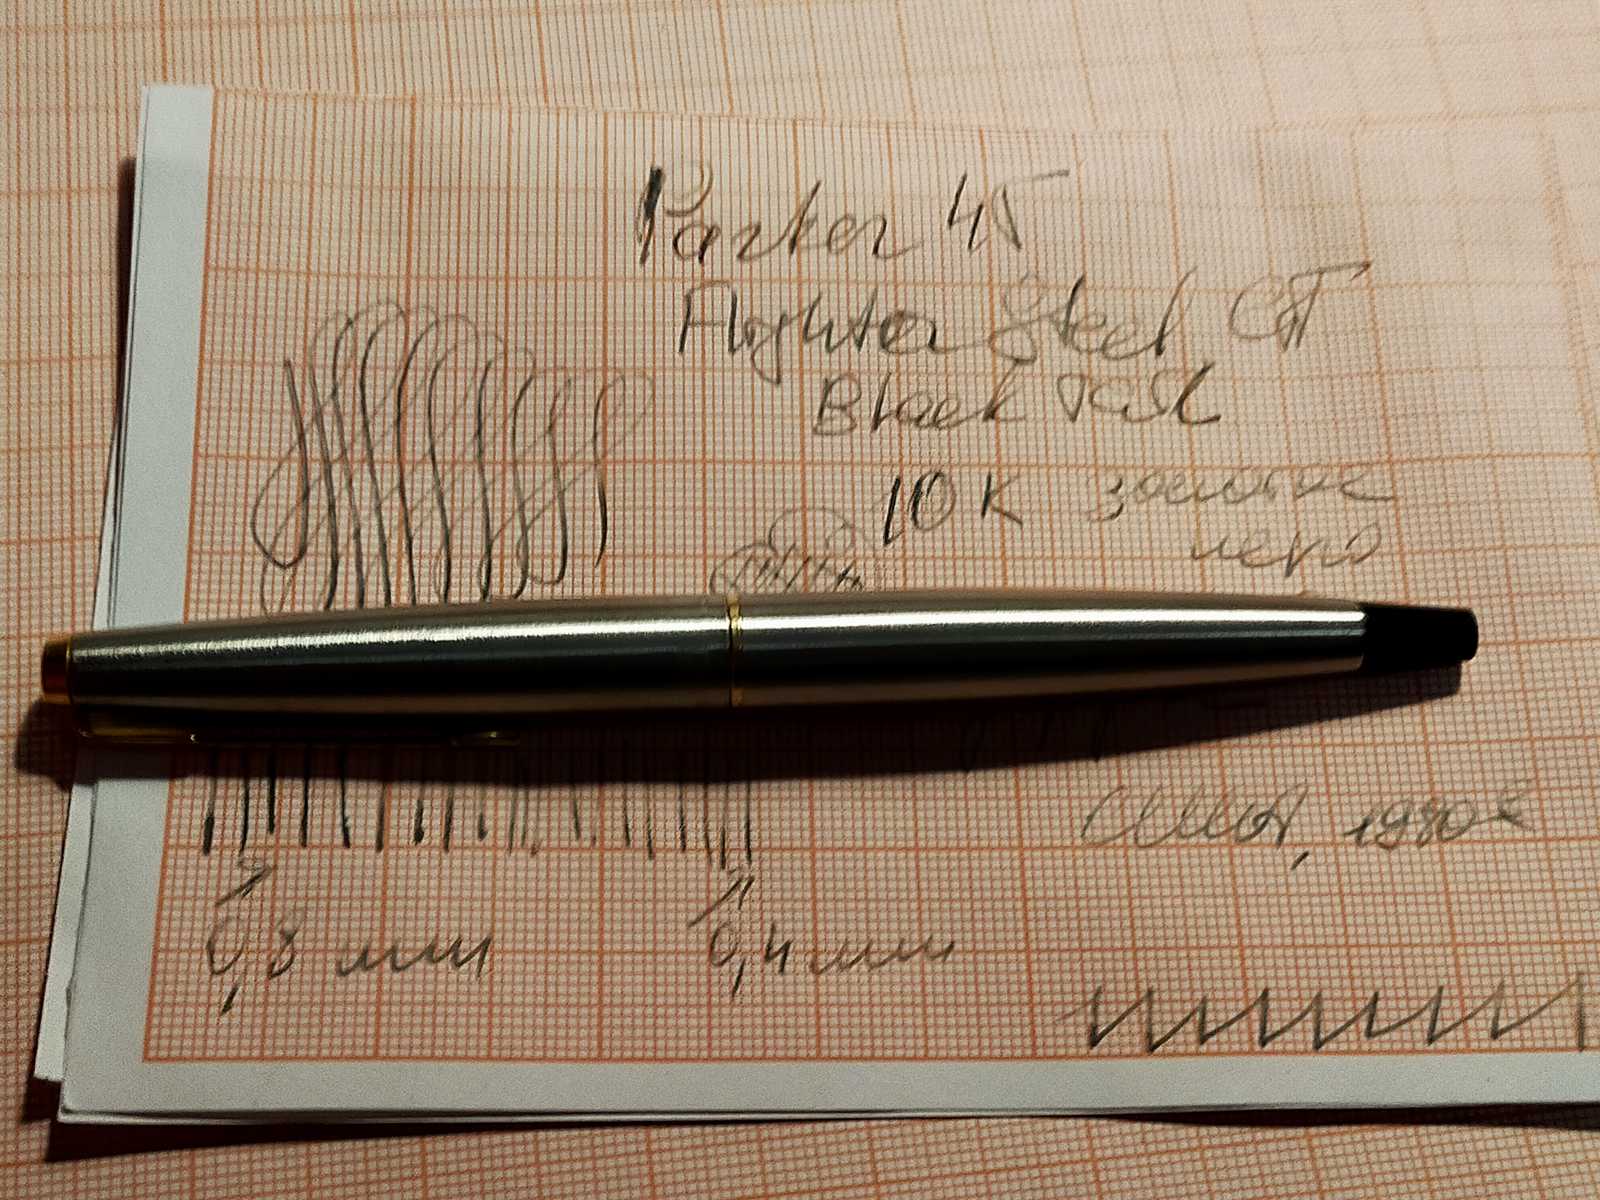 Parker 45
Flighter Steel, GT
Black Tassie
10 К золотое
перо
США, 1980 е
0,8 мм
0,4 мм